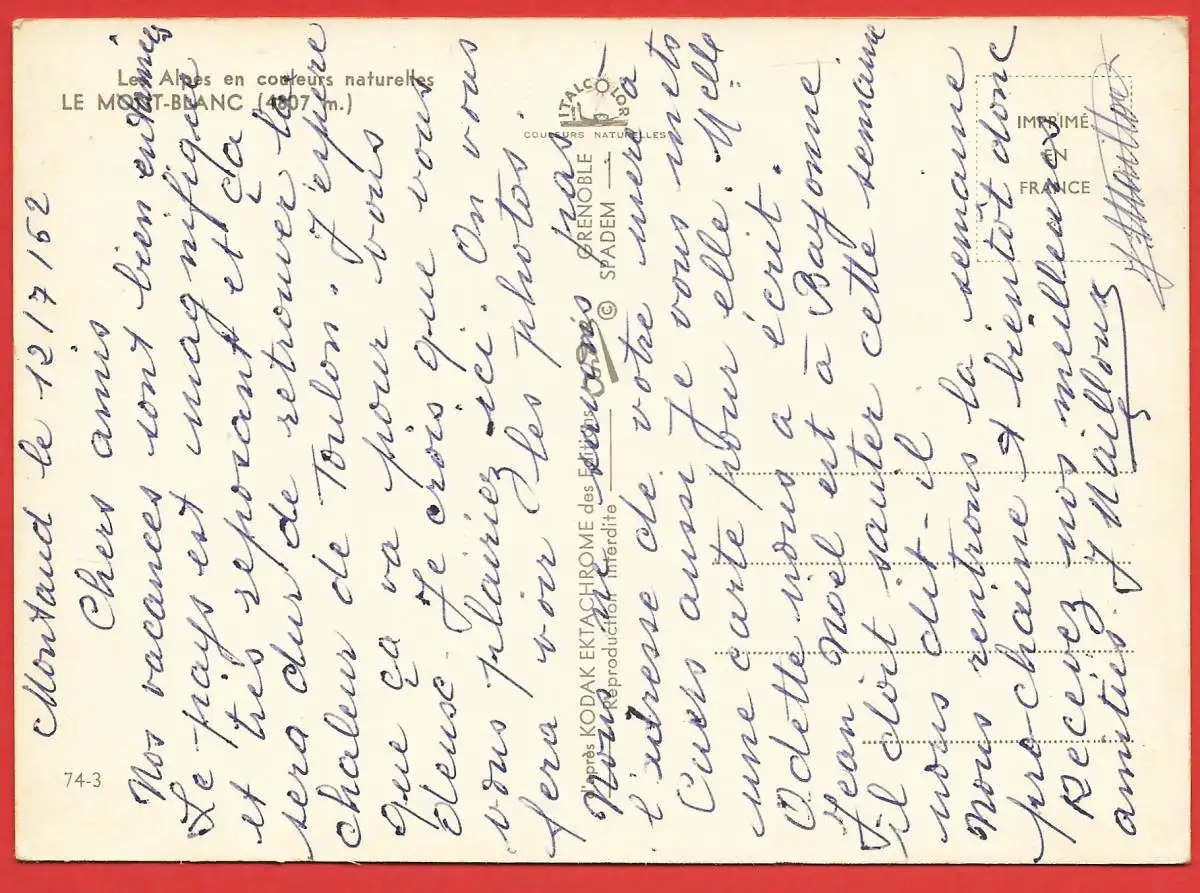 Les Alpes en couleurs naturelles
LE MONT-BLANC (4807 m.)
ITALCOLOR
COULEURS NATURELLES
IMPRIMÉ
EN
FRANCE
74-3
D'après KODAK EKTACHROME des Editions GRENOBLE
Reproduction interdite © SPADEM
Montaud le 12/7/62
Chers amis
Nos vacances sont bien entamées
Le pays est magnifique
et très reposant et ça
sera dur de retrouver la
chaleur de Toulon. J'espère
que ça va pour vous
deux. Je crois que vous
vous plairiez ici. On vous
fera voir les photos.
Nous ne savons pas
l'adresse de votre mère à
Cuers aussi Je vous mets
une carte pour elle. Melle
Odette nous a écrit.
Jean Noël est à Bayonne.
il doit sauter cette semaine
nous dit-il
Nous rentrons la semaine
prochaine et bientôt donc
Recevez nos meilleures
amitiés. J Mailloux